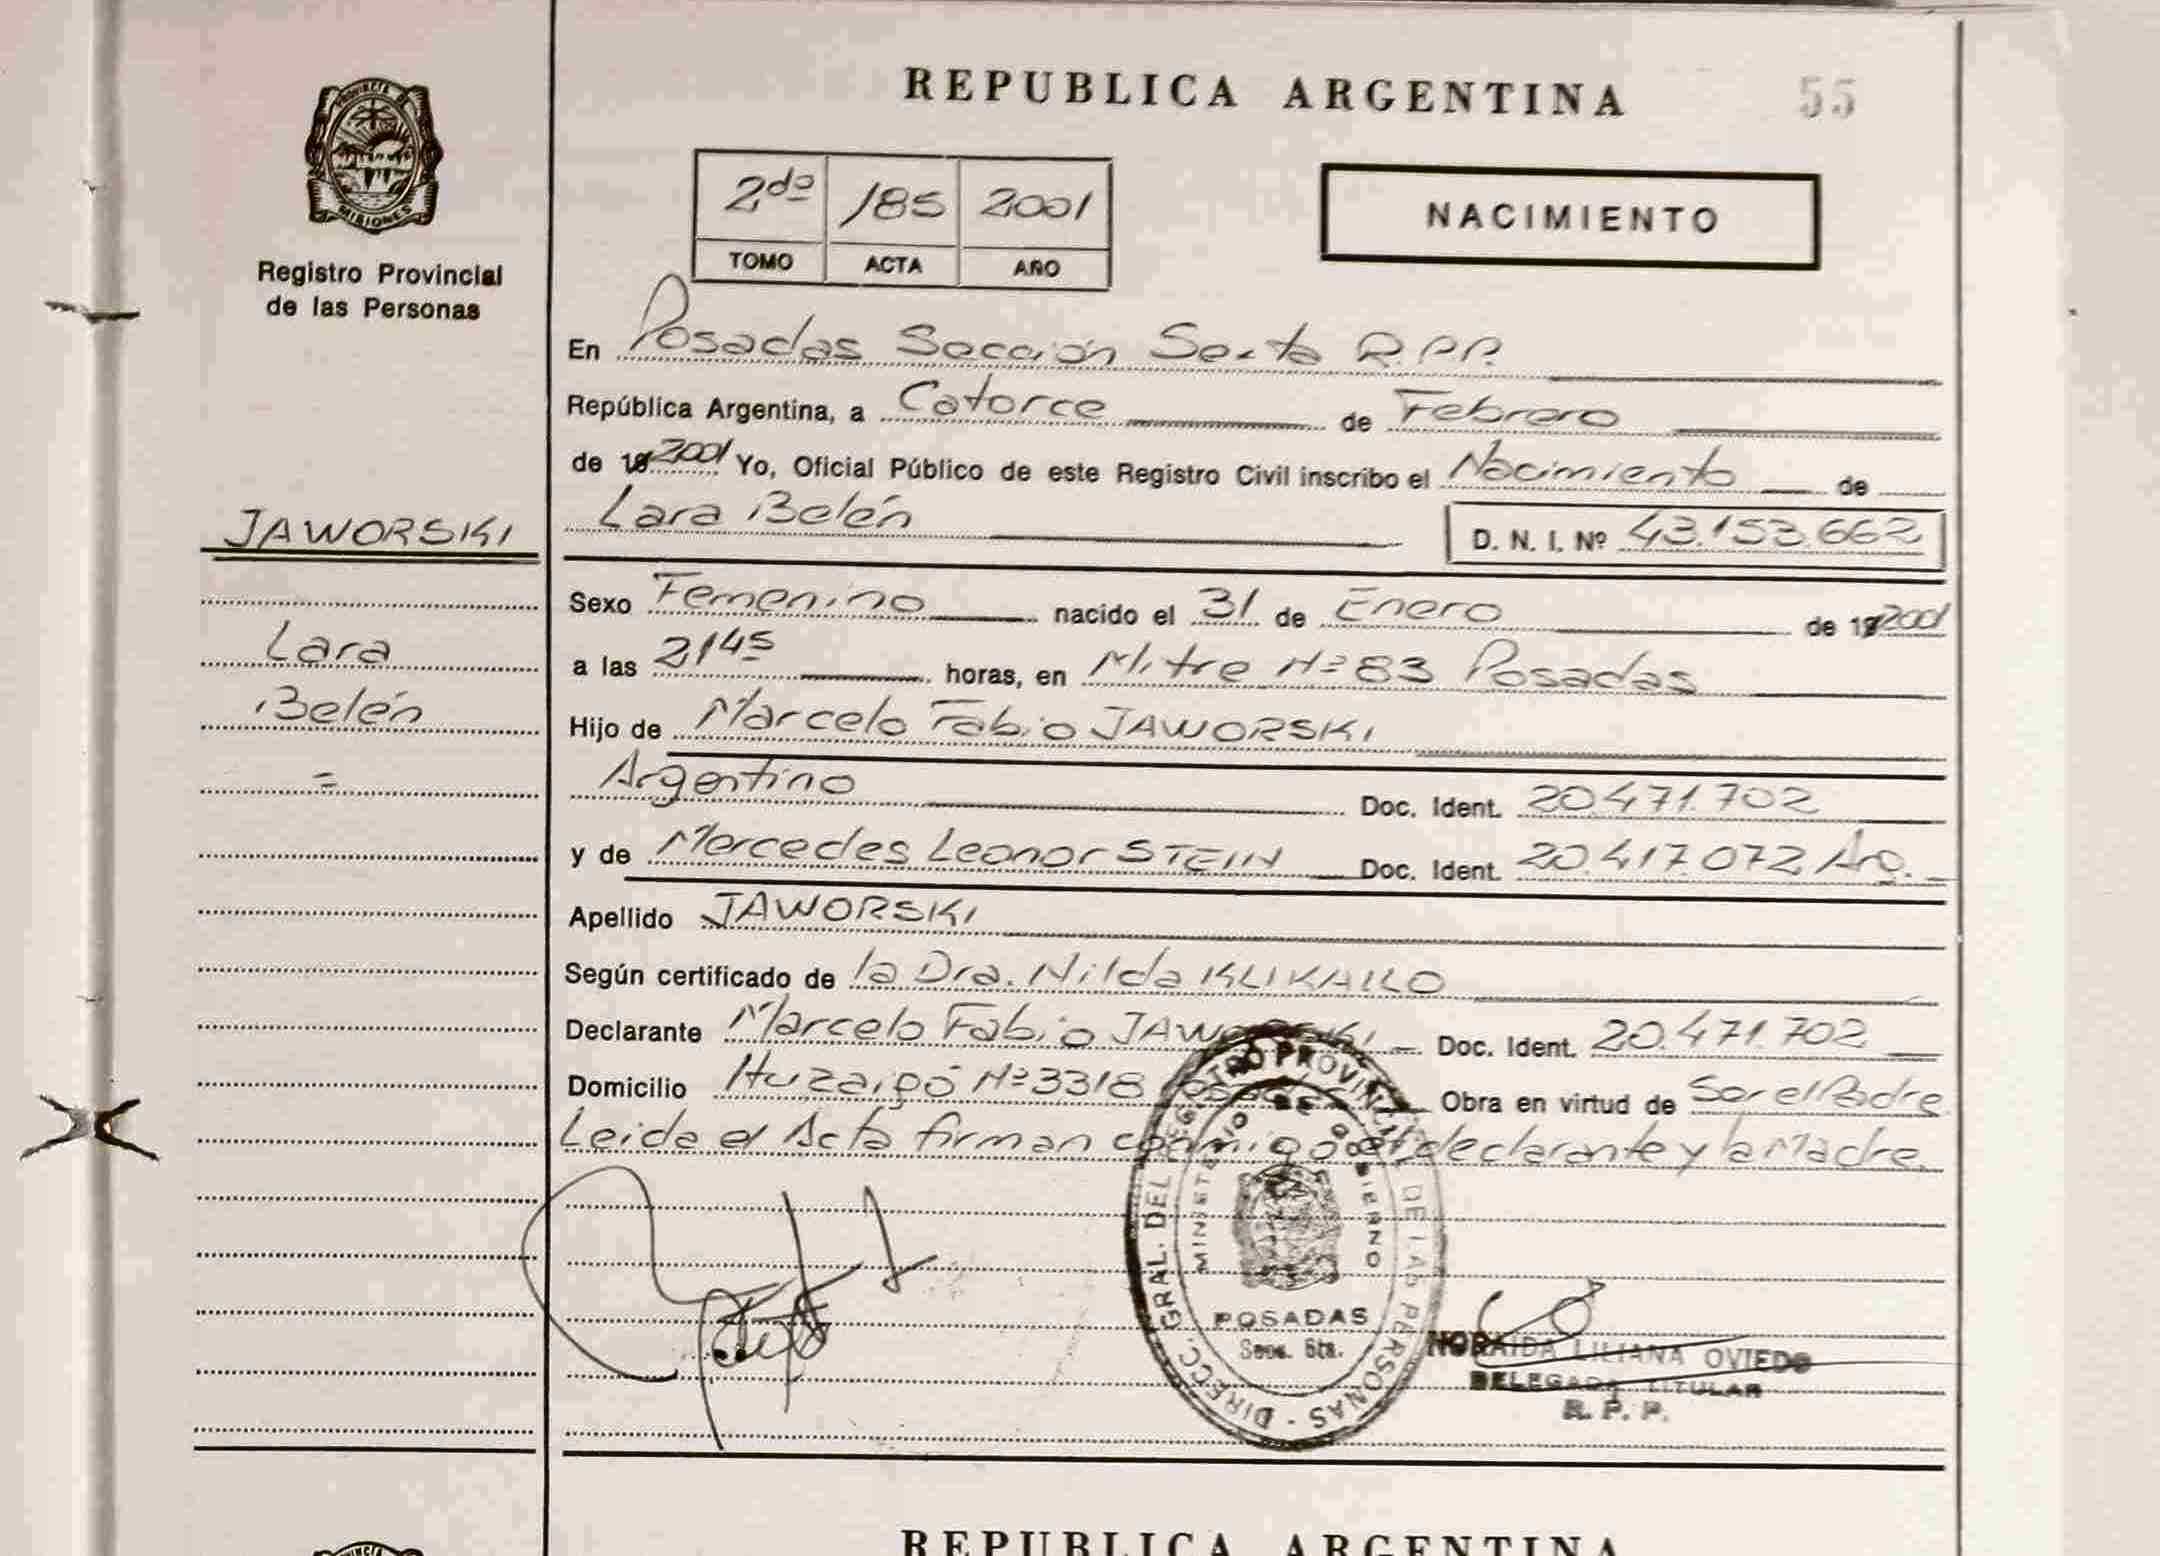 REPUBLICA ARGENTINA
55
PROVINCIA D
MISIONES
Registro Provincial
de las Personas
2do 185 2001
TOMO ACTA AÑO
NACIMIENTO
En Posadas Sección Sexta R.P.P.
República Argentina, a Catorce de Febrero
de 19 2001 Yo, Oficial Público de este Registro Civil inscribo el Nacimiento de
JAWORSKI
Lara Belén
D. N. I. Nº 43.153.662
Sexo Femenino nacido el 31 de Enero de 19 2001
Lara
a las 2145 horas, en Mitre Nº 83 Posadas
Belén
Hijo de Marcelo Fabio JAWORSKI
=
Argentino Doc. Ident. 20.471.702
y de Mercedes Leonor STEIN Doc. Ident. 20.417.072 Arg.
Apellido JAWORSKI
Según certificado de la Dra. Nilda
Declarante Marcelo Fabio JAWORSKI Doc. Ident. 20.471.702
Domicilio Nº 3318 Posadas Obra en virtud de Ser el Padre
Leida el Acta firman conmigo el declarante y la Madre.
DIRECC. GRAL. DEL REGISTRO PROVINCIAL DE LAS PERSONAS
MINISTERIO DE GOBIERNO
POSADAS
Secc. 6ta.
NORAIDA LILIANA OVIEDO
DELEGADA TITULAR
R. P. P.
REPUBLICA ARGENTINA